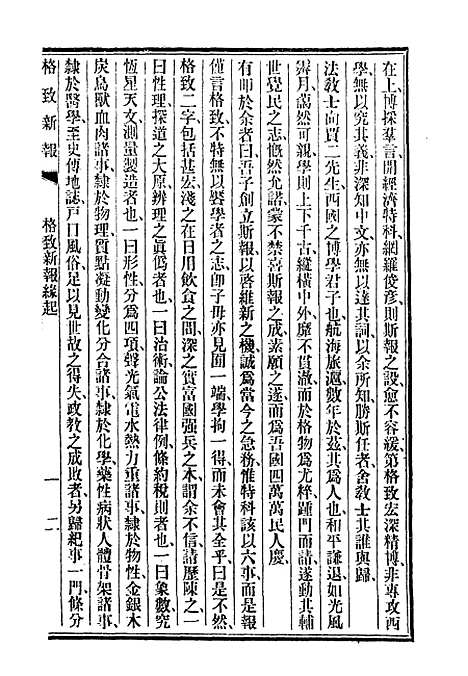 在上、博採羣言、開經濟特科、網羅俊彥、則斯報之設、愈不容緩、第格致宏深精博、非專攻西
學、無以究其義、非深知中文、亦無以達其詞、以余所知、勝斯任者、舍教士其誰與歸、
法教士向賈二先生、西國之博學君子也、航海旅滬、數年於茲、其爲人也、和平謙退、如光風
霽月、藹然可親、學則上下千古、縱橫中外、靡不貫澈、而於格物爲尤粹、踵門而請、遂動其輔
世覺民之志、慨然允諾、蒙不禁喜斯報之成、素願之遂、而爲吾國四萬萬民人慶、
有叩於余者、曰、吾子創立斯報、以啓維新之機、誠爲當今之急務、惟特科該以六事、而是報
僅言格致、不特無以饜學者之志、卽子毋亦見囿一端、學拘一得、而未會其全乎、曰是不然、
格致二字、包括甚宏、淺之在日用飲食之間、深之實富國强兵之本、謂余不信、請歷陳之、一
曰性理、探道之大原、辨理之眞僞者也、一曰治術、論公法律例、條約稅則者也、一曰象數、究
恆星天文、測量製造者也、一曰形性、分爲四項、聲光氣電水熱力重諸事、隸於物性、金銀木
炭鳥獸血肉諸事、隸於物理、質點凝動變化分合諸事、隸於化學、藥性病狀人體骨架諸事、
隸於醫學、至史傳地誌、戶口風俗、足以見世故之得失、政教之成敗者、另歸紀事一門、條分
格致新報
格致新報緣起
一
二